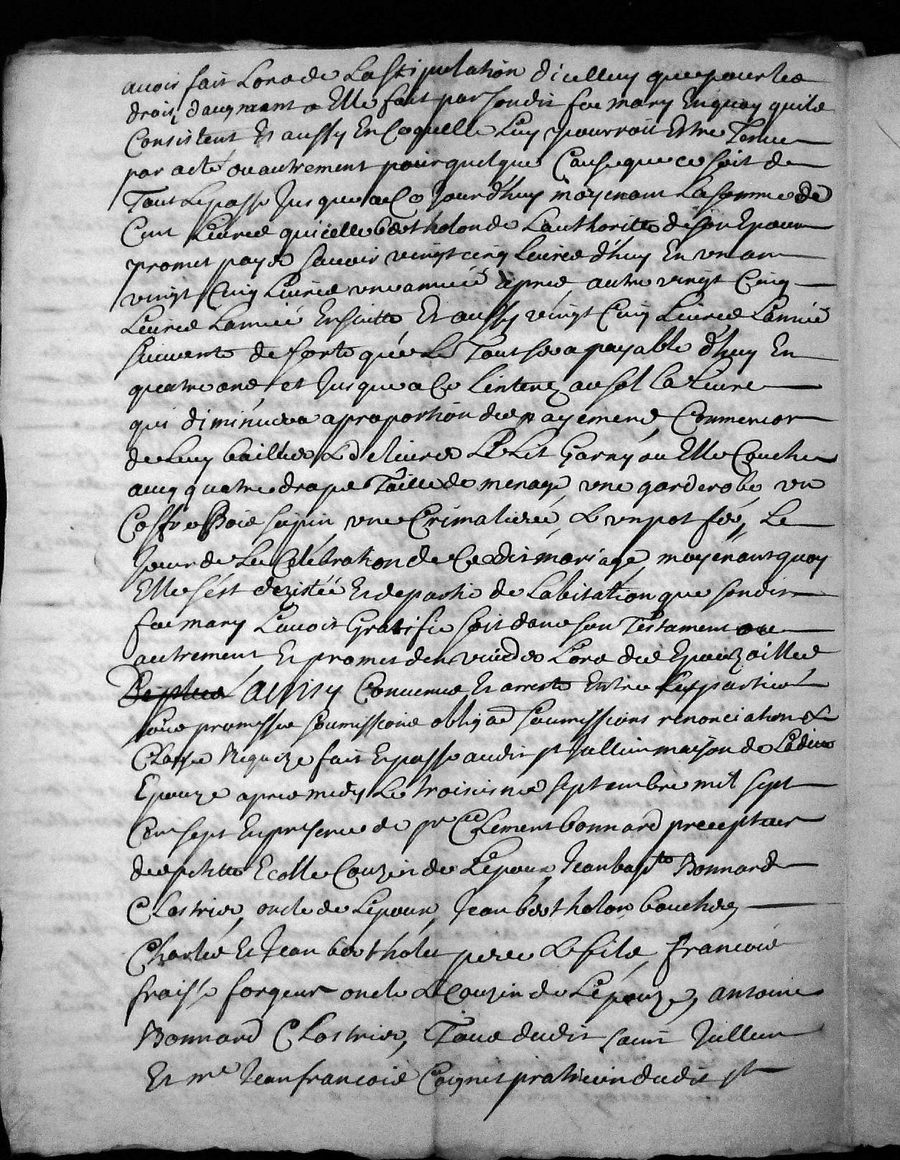 avoir fait Lors de La stipulation d'icelluy que pour les
drois d'augment a Elle fait par sondit feu mary En quoy quils
Consistent Et aussy En Ce quelle Luy pourroit Estre Tenue
par acte ou autrement pour quelque Cause que ce soit de
Tout Le passé Jusque a Ce Jourd'huy moyenant La somme de
Cent Livres qu'icelle bertholon de L'authorité de son Epoux
promet payer savoir vingt cinq Livres d'huy En un an
vingt Cinq Livres une année apres autre vingt Cinq
Livres L'année Ensuitte Et aussy vingt Cinq Livres L'année
suivante de sorte que Le Tout sera payable d'huy En
quatre ans et Jusque a Ce L'interez au sol La Livre
qui diminuera a proportion des payements, Comme
de Luy bailler Et delivrer Le Lit Garny ou Elle Couche
avec quatre draps Toille de menage, une garderobe, un
Coffre Bois sapin une Crimaliere, Et un pot fer, Le
Jour de La Celebration de Ce dit mariage, moyenant quoy
Elle s'est dezistée Et departie de L'abitation que sondit
feu mary L'avoit Gratifié soit dans son Testament ou
autrement Et promet d'en vuider Lors des Epouzailles
ainsy Convenu Et arresté Entre Les parties
sous promesse soumissions oblig[ati]on soumissions renonciation Et
Clause Requize fait Et passé audit st Jullien maison de Ladite
Epouze apres midy Le Troisieme septembre mil sept
Cent sept En presence de Clement bonnard precepteur
des petitte Ecolle Couzin de L'epoux Jean bapte Bonnard
Clostrier, oncle de L'epoux, Jean bertholon boucher,
Charles Et Jean bertholet pere Et fils, francois
fraisse forgeur oncle Et Couzin de L'epouze, antoine
Bonnard Clostrier, Tous dudit saint Jullien
Et me Jean francois Coignet praticien dudit st